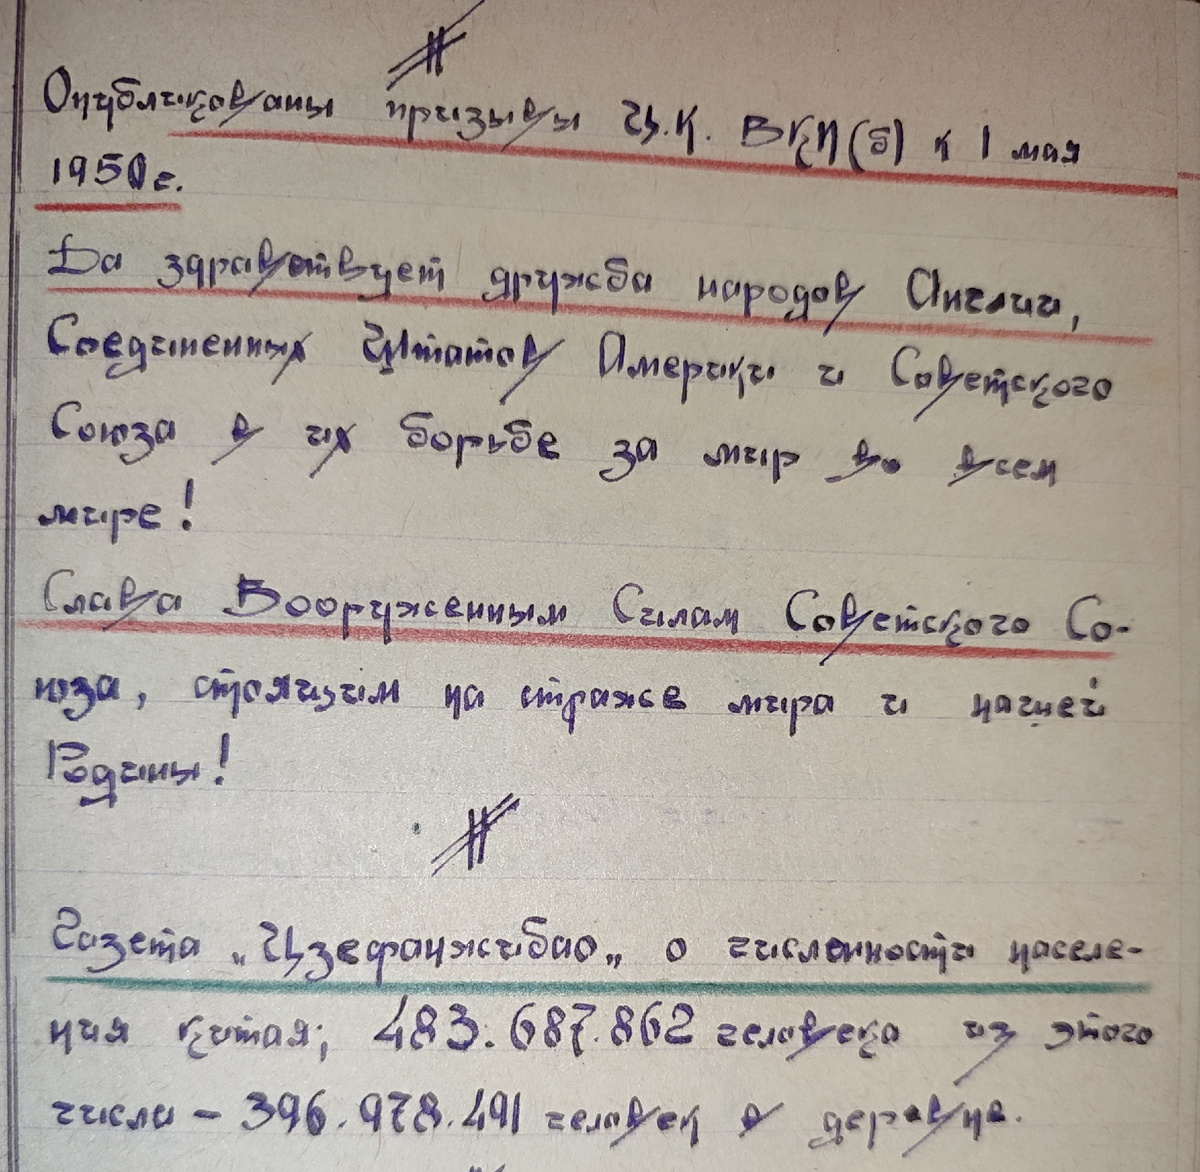 Опубликованы призывы Ц.К. ВКП(б) к 1 мая
1950г.
Да здравствует дружба народов Англии,
Соединенных Штатов Америки и Советского
Союза в их борьбе за мир во всем
мире!
Слава Вооруженным Силам Советского Со-
юза, стоящим на страже мира и нашей
Родины!
Газета „Цзефанжибао„ о численности населе-
ния китая; 483.687.862 человека из этого
числа – 396.978.491 человек в деревне.